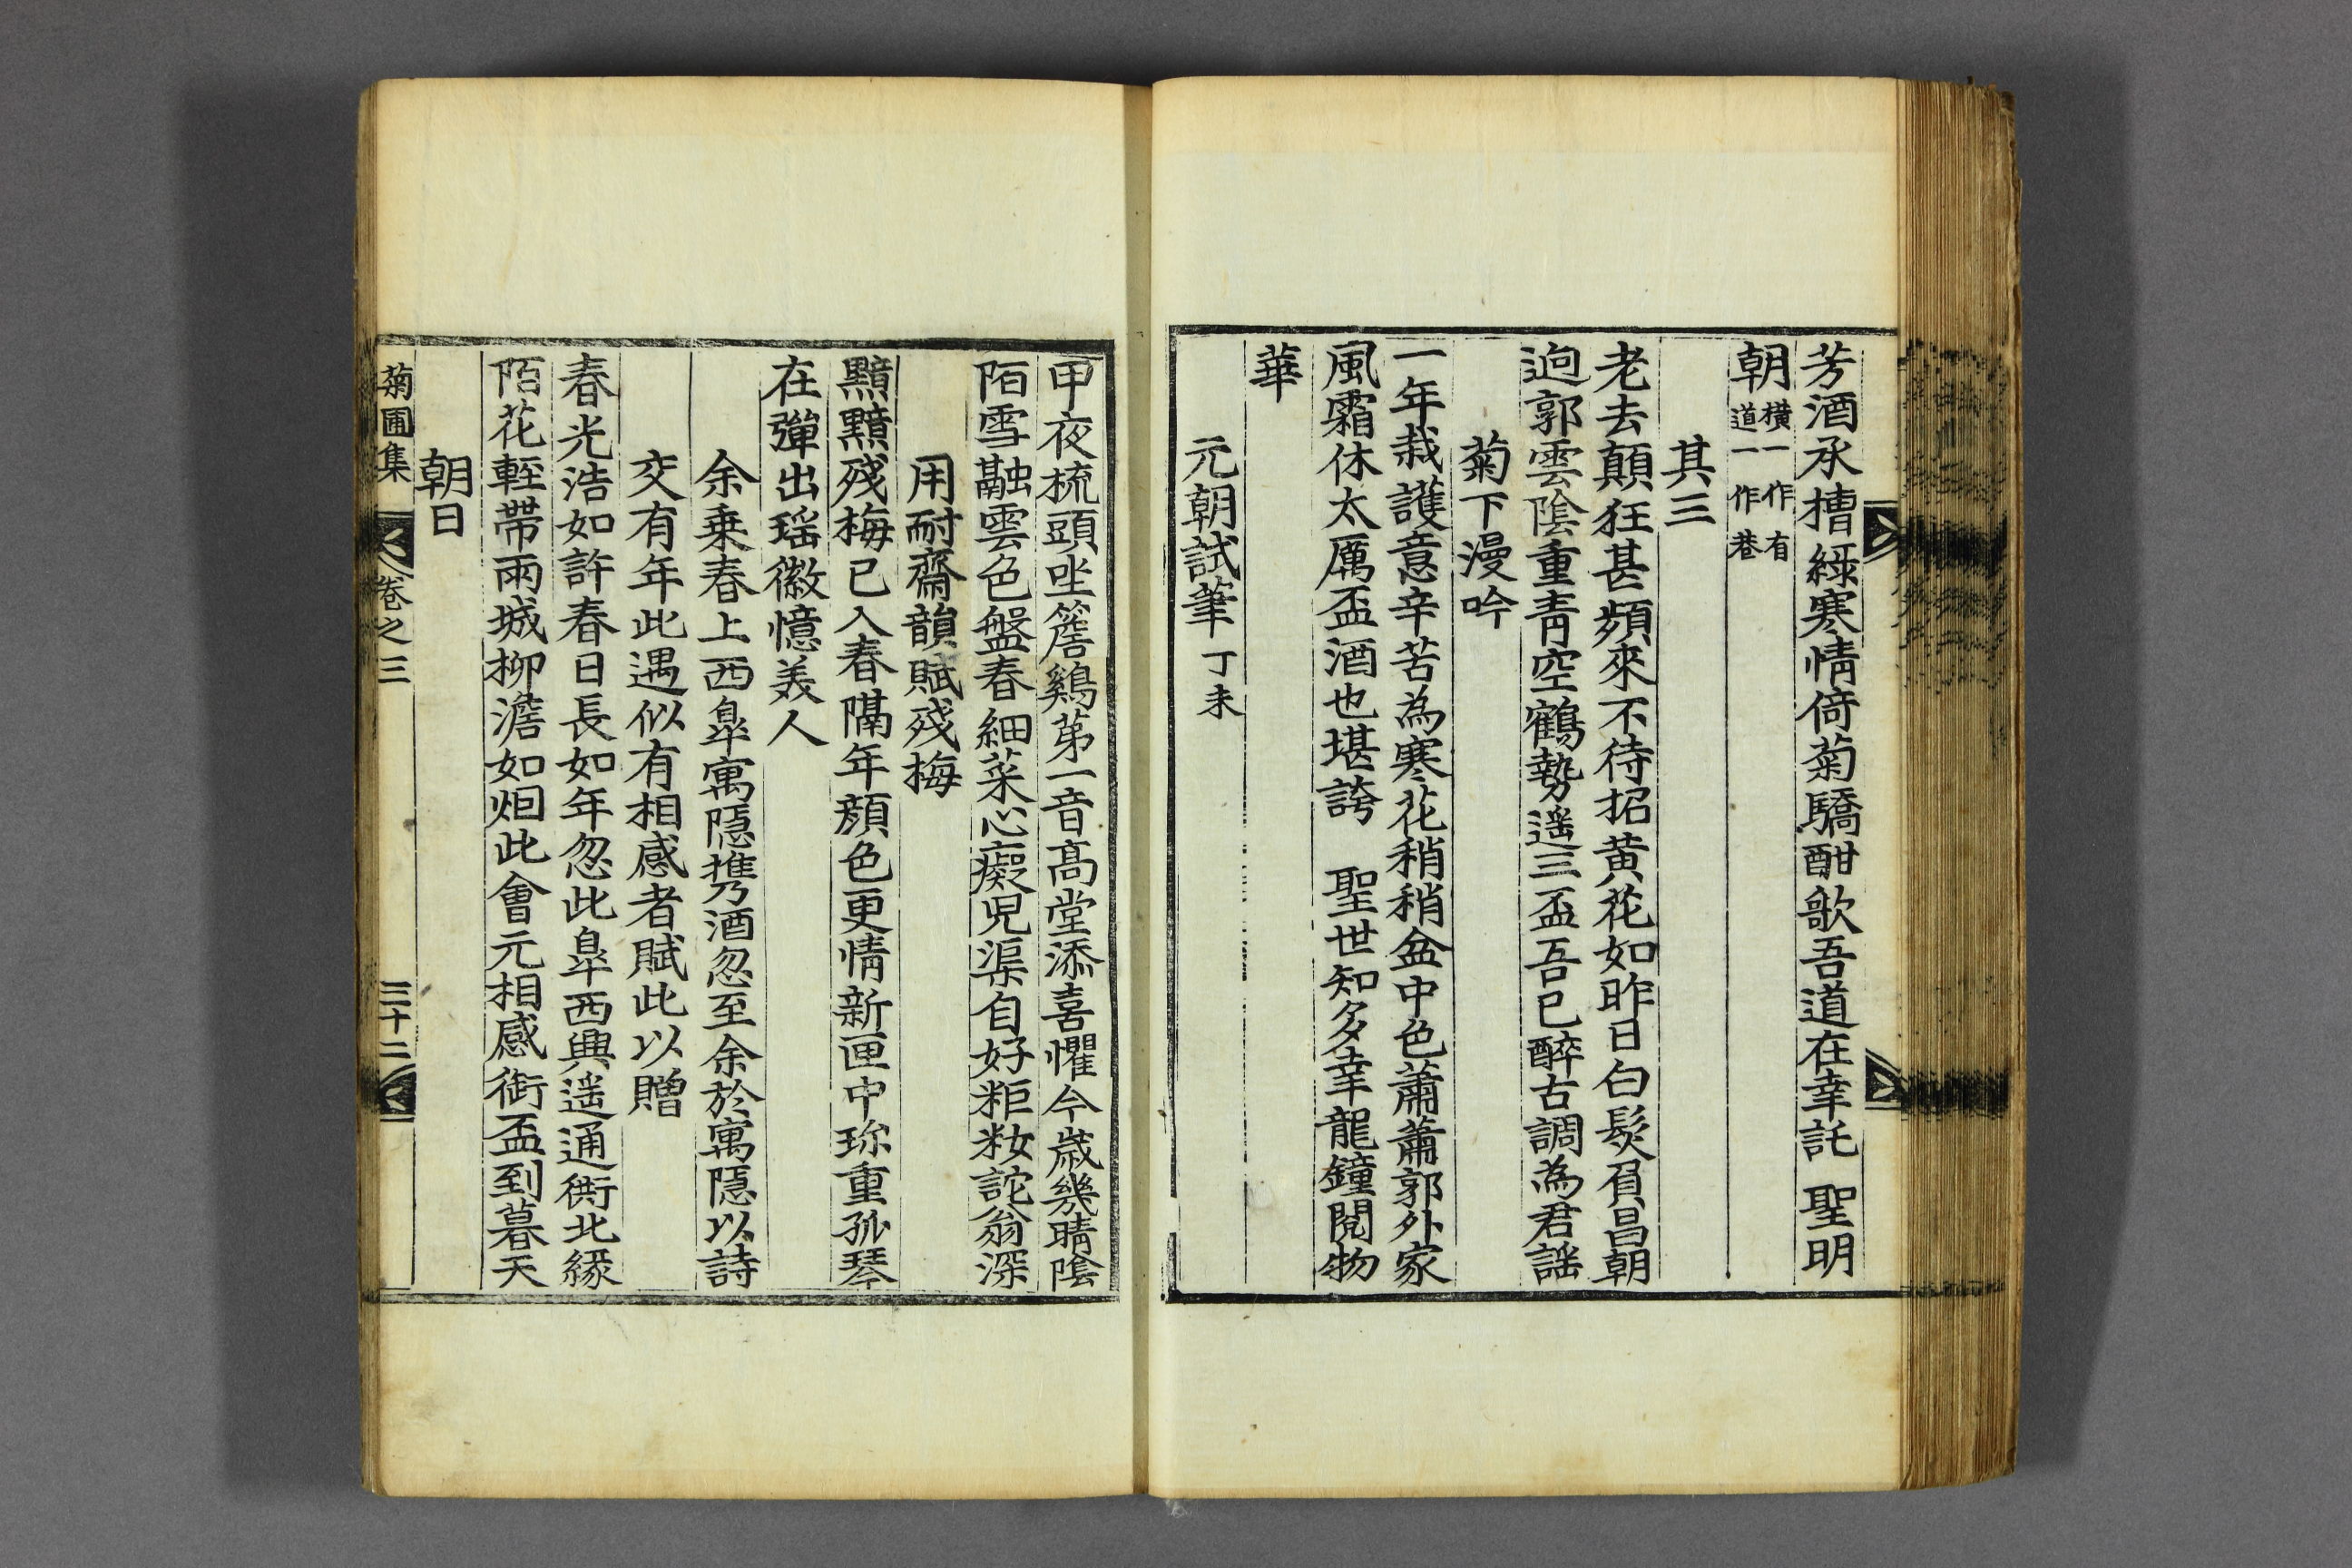 芳酒承槽綠寒情倚菊驕酣歌吾道在幸託 聖明
朝橫一作有道一作巷
其三
老去顛狂甚頻來不待招黃花如昨日白髮負昌朝
逈郭雲陰重靑空鶴勢遥三盃吾已醉古調為君謡
菊下漫吟
一年栽護意辛苦為寒花稍稍盆中色蕭蕭郭外家
風霜休太厲盃酒也堪誇 聖世知多幸龍鐘閱物
華
元朝試筆 丁未
甲夜梳頭坐簷鷄第一音高堂添喜懼今歲幾晴陰
陌雪融雲色盤春細菜心癡児渠自好粔籹詑翁深
用耐齋韻賦殘梅
黯黯殘梅已入春隔年顏色更情新匣中珎重孤琴
在彈出瑶徽憶美人
余乗春上西皐寓隱携酒忽至余於寓隱以詩
交有年此遇似有相感者賦此以贈
春光浩如許春日長如年忽此皐西興遥通衖北緣
陌花輕帶雨城柳澹如烟此會元相感銜盃到暮天
朝日
菊圃集 卷之三 三十二